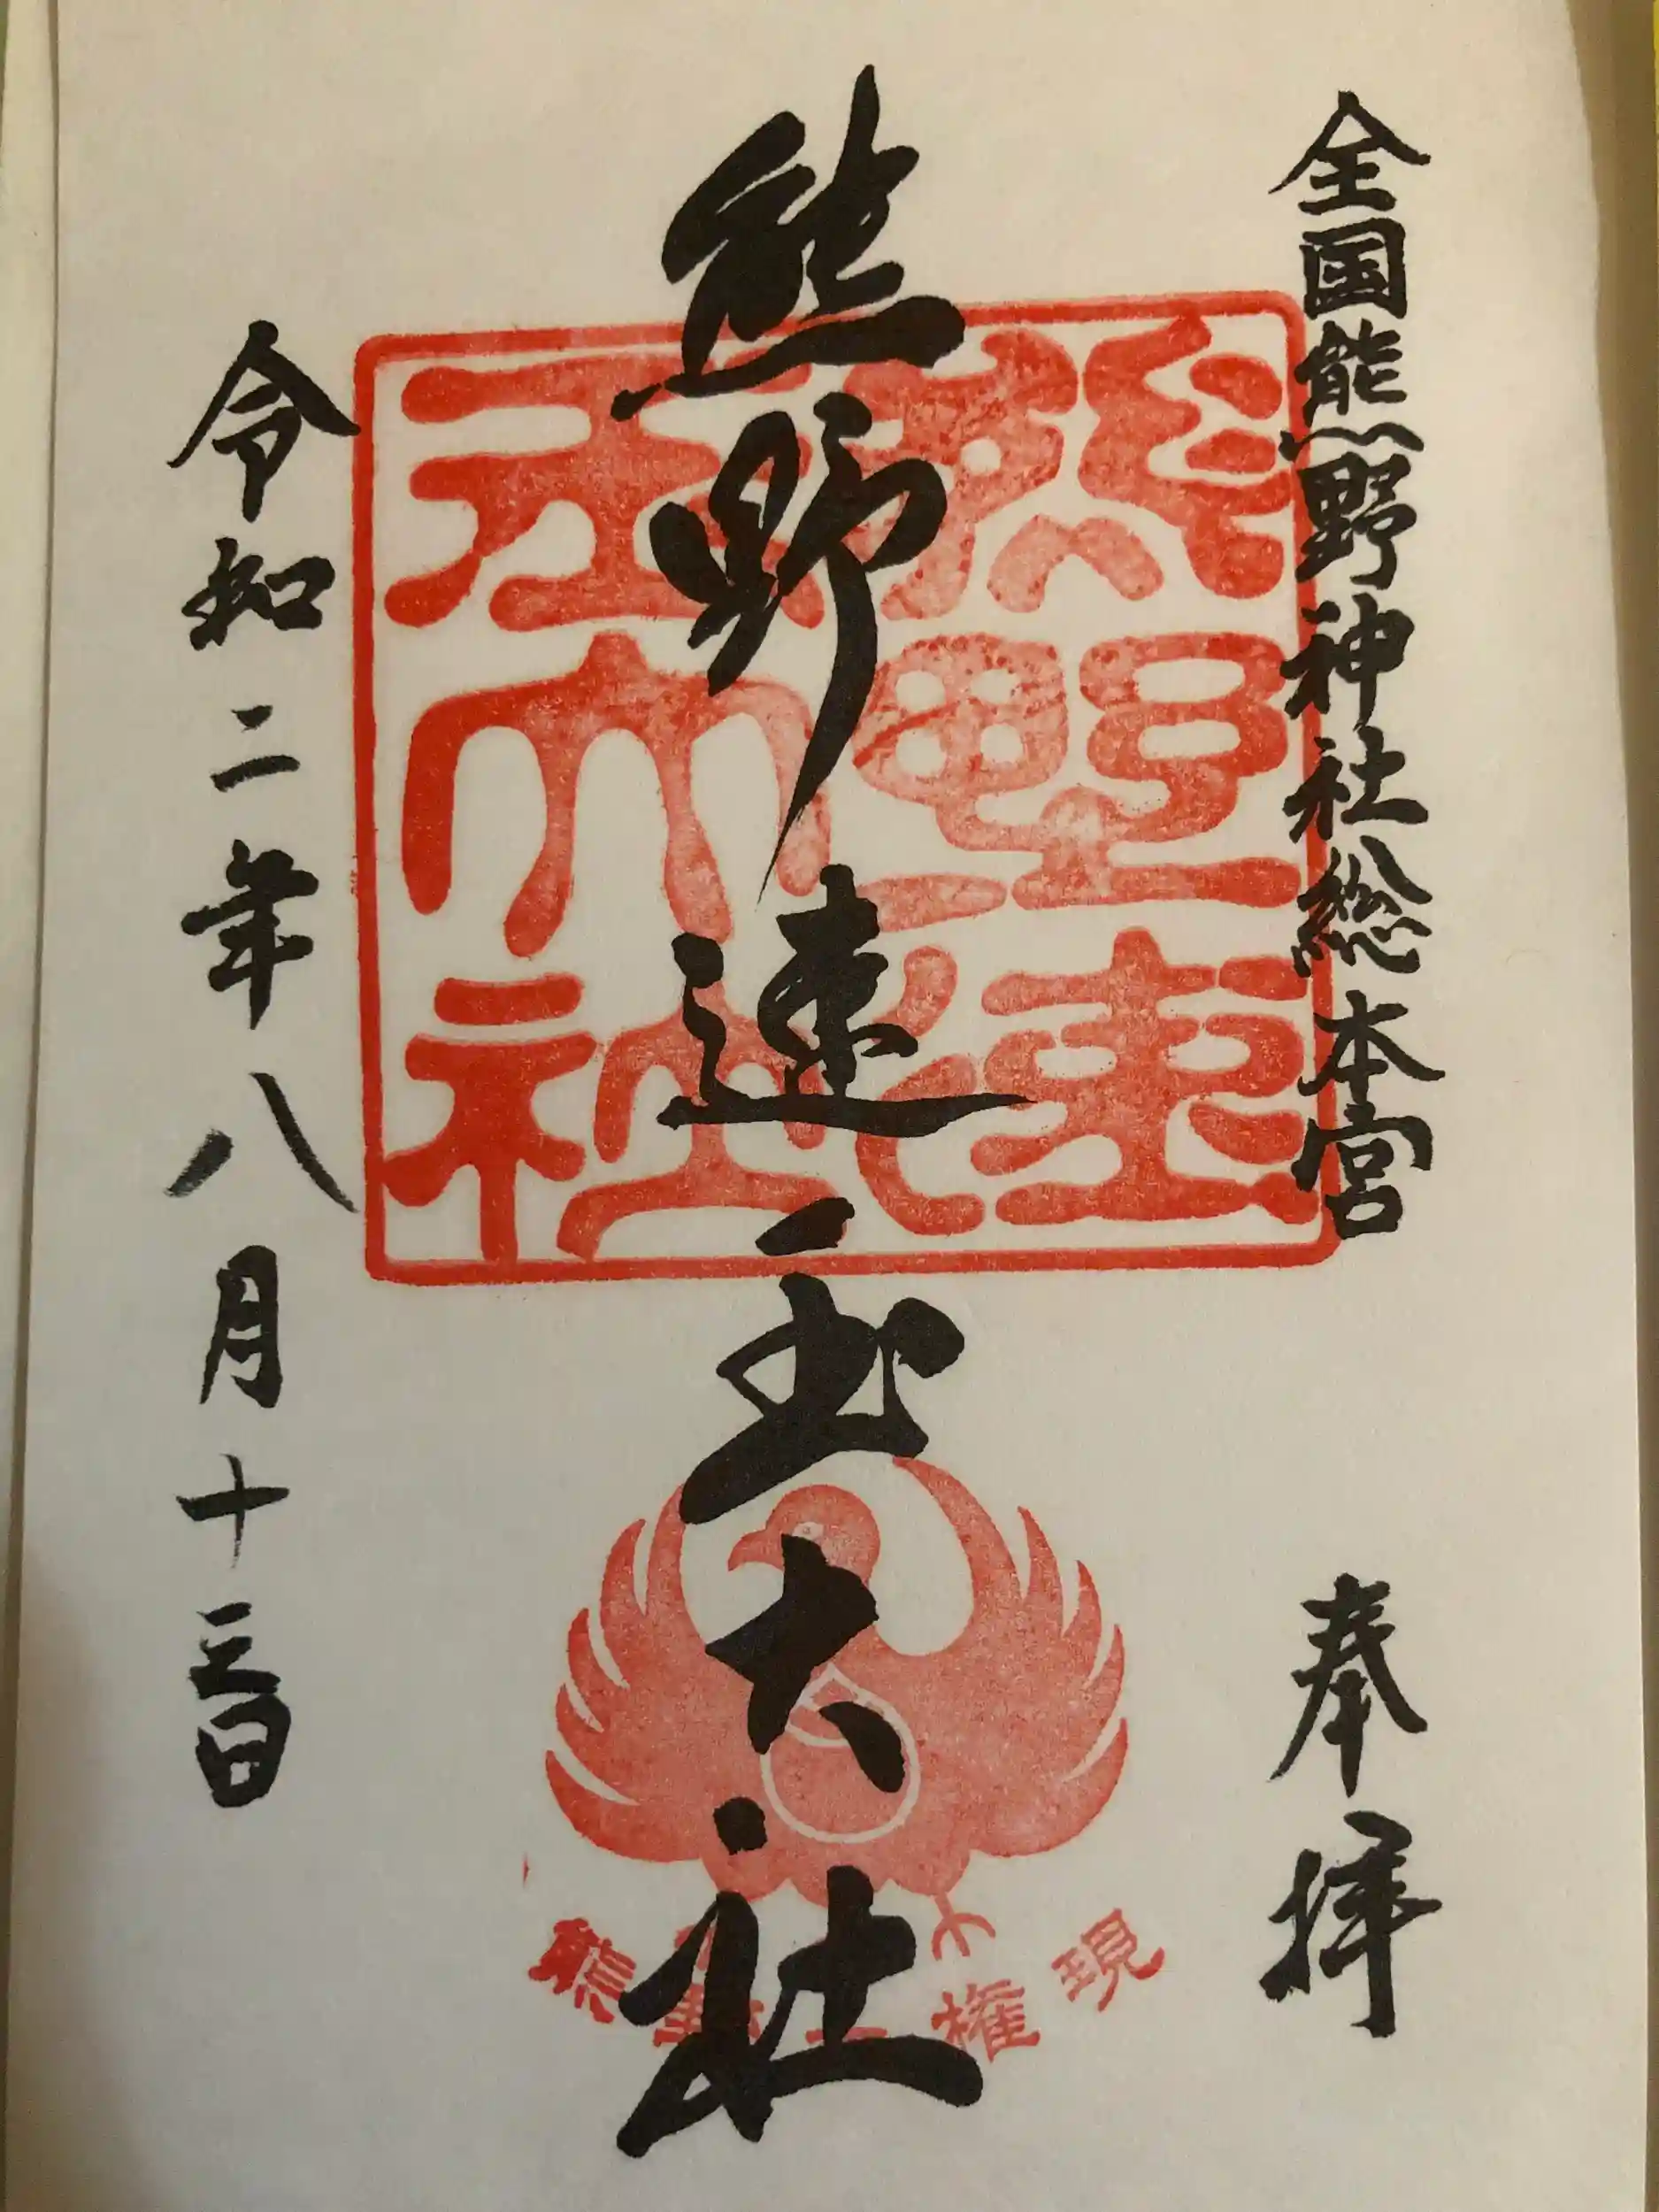 全国熊野神社総本宮 奉拝
熊野速玉大社
令和二年八月十三日
熊野速
玉大社
熊野 権現